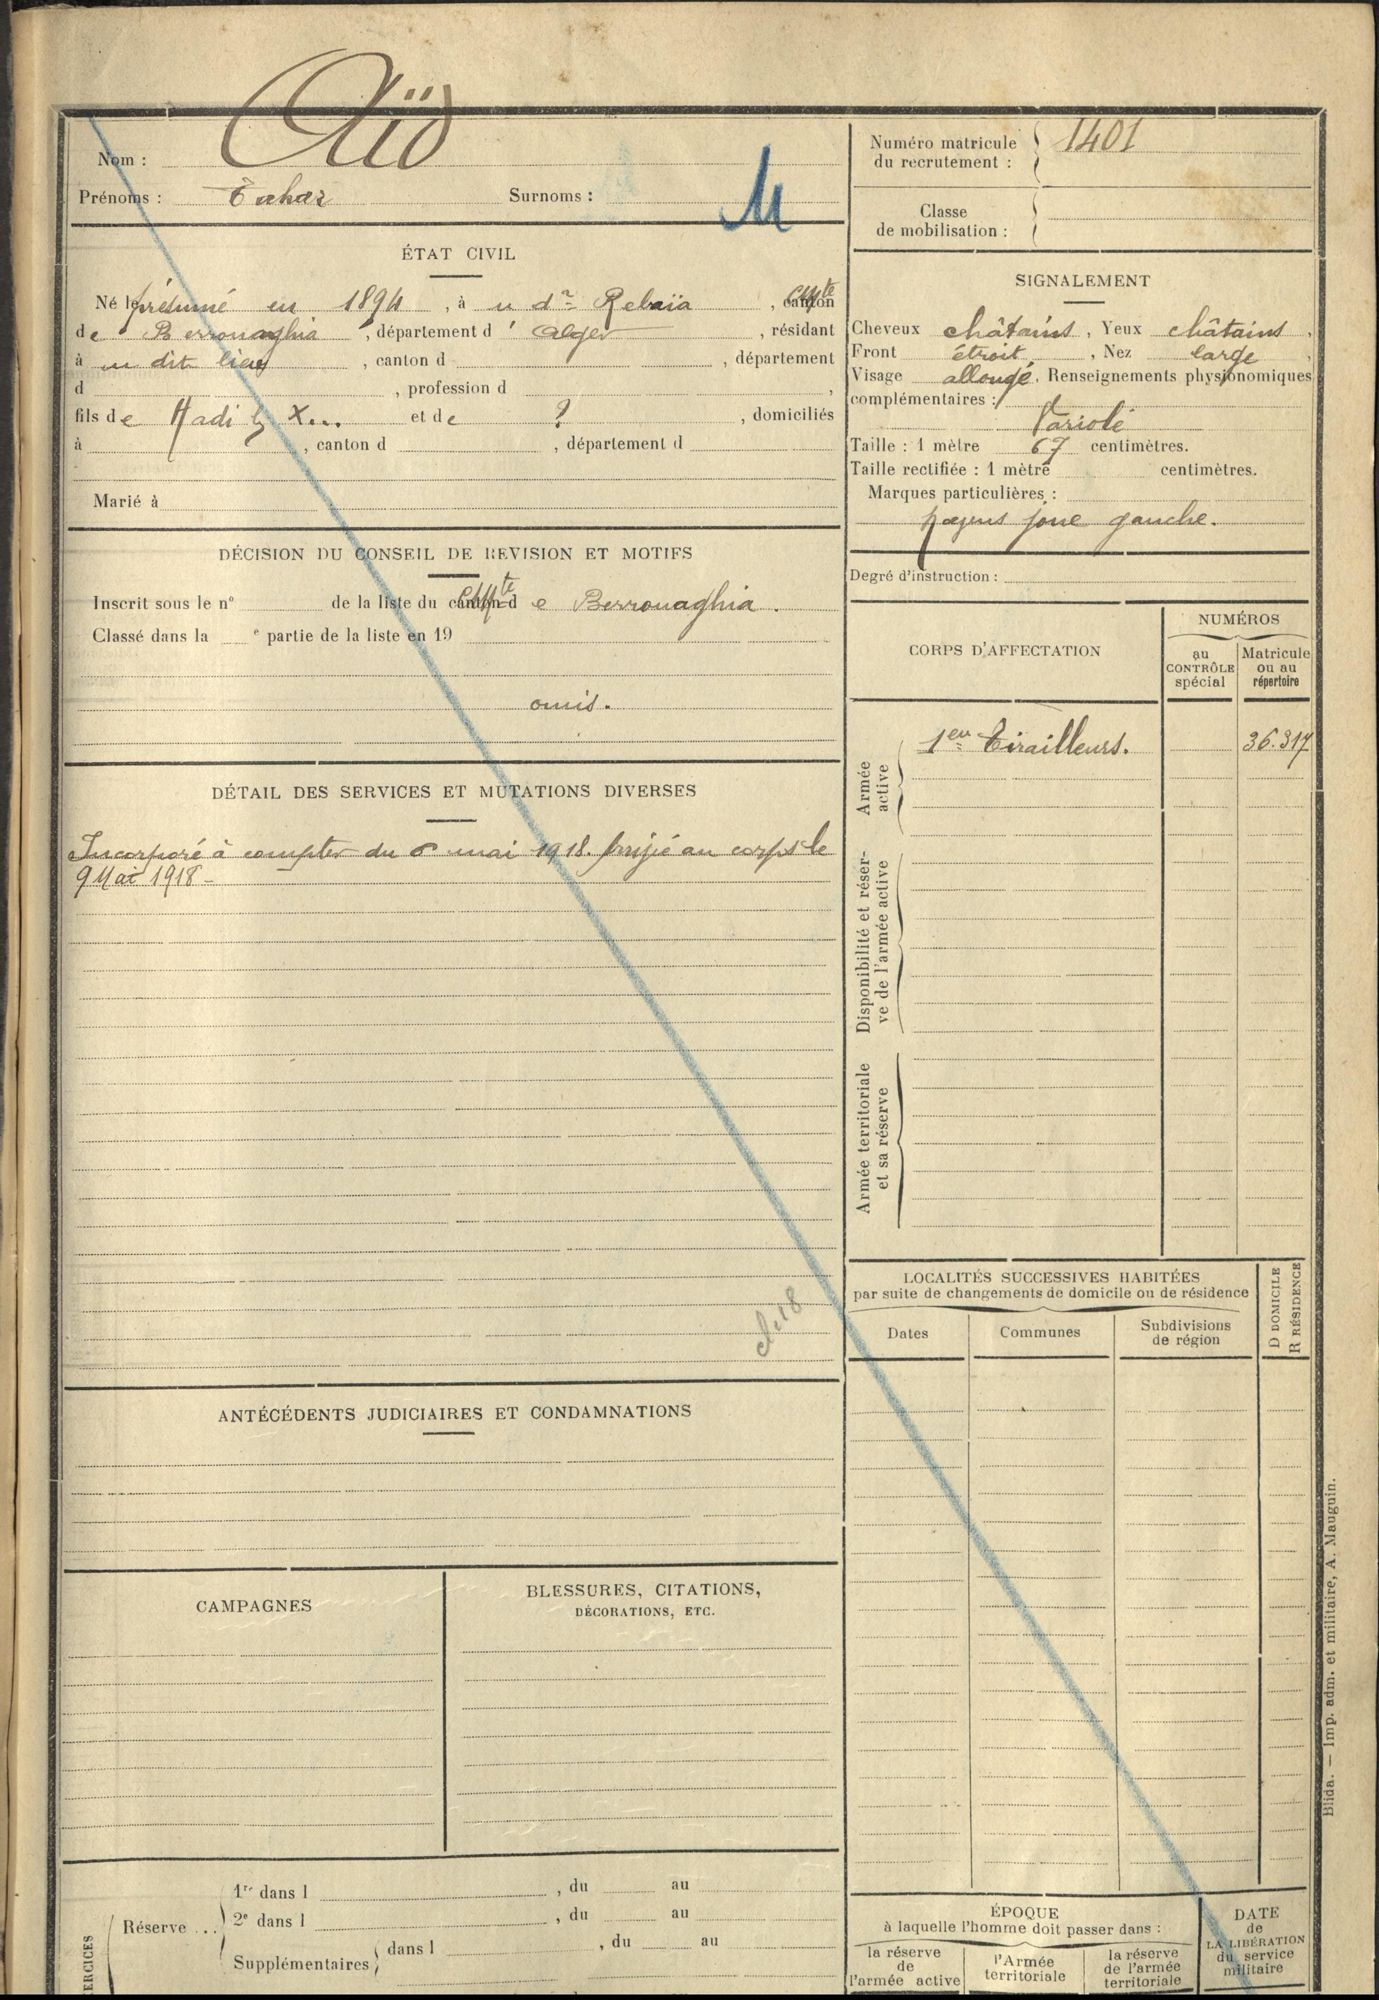 Nom : Aïd
Prénoms : Tahar Surnoms :
M
Numéro matricule
du recrutement : 1401
Classe
de mobilisation :
ÉTAT CIVIL
Né le présumé en 1894, à u dr Rebaïa, canton Cne mte
de Berrouaghia, département d' Alger, résidant
à u dit lieu, canton d , département
d , profession d ,
fils de Hadi b X... et de ? , domiciliés
à , canton d , département d
Marié à
SIGNALEMENT
Cheveux châtains, Yeux châtains,
Front étroit, Nez large,
Visage allongé. Renseignements physionomiques
complémentaires :
Variolé
Taille : 1 mètre 67 centimètres.
Taille rectifiée : 1 mètre centimètres.
Marques particulières :
joue gauche.
Degré d'instruction :
DÉCISION DU CONSEIL DE REVISION ET MOTIFS
Inscrit sous le n° de la liste du canton d e Berrouaghia.
Classé dans la e partie de la liste en 19
omis.
CORPS D'AFFECTATION
NUMÉROS
au
CONTRÔLE
spécial
Matricule
ou au
répertoire
Armée
active
1er Tirailleurs. 36.317
Disponibilité et réser-
ve de l'armée active
Armée territoriale
et sa réserve
DÉTAIL DES SERVICES ET MUTATIONS DIVERSES
Incorporé à compter du 6 mai 1918. Arrivé au corps le
9 Mai 1918 -
LOCALITÉS SUCCESSIVES HABITÉES
par suite de changements de domicile ou de résidence
Dates
Communes
Subdivisions
de région
D DOMICILE
R RÉSIDENCE
ANTÉCÉDENTS JUDICIAIRES ET CONDAMNATIONS
CAMPAGNES
BLESSURES, CITATIONS,
DÉCORATIONS, ETC.
EXERCICES
Réserve ...
1re dans l , du au
2e dans l , du au
Supplémentaires dans l , du au
ÉPOQUE
à laquelle l'homme doit passer dans :
la réserve
de
l'armée active
l'Armée
territoriale
la réserve
de l'armée
territoriale
DATE
de
LA LIBÉRATION
du service
militaire
Blida. — Imp. adm. et militaire, A. Mauguin.